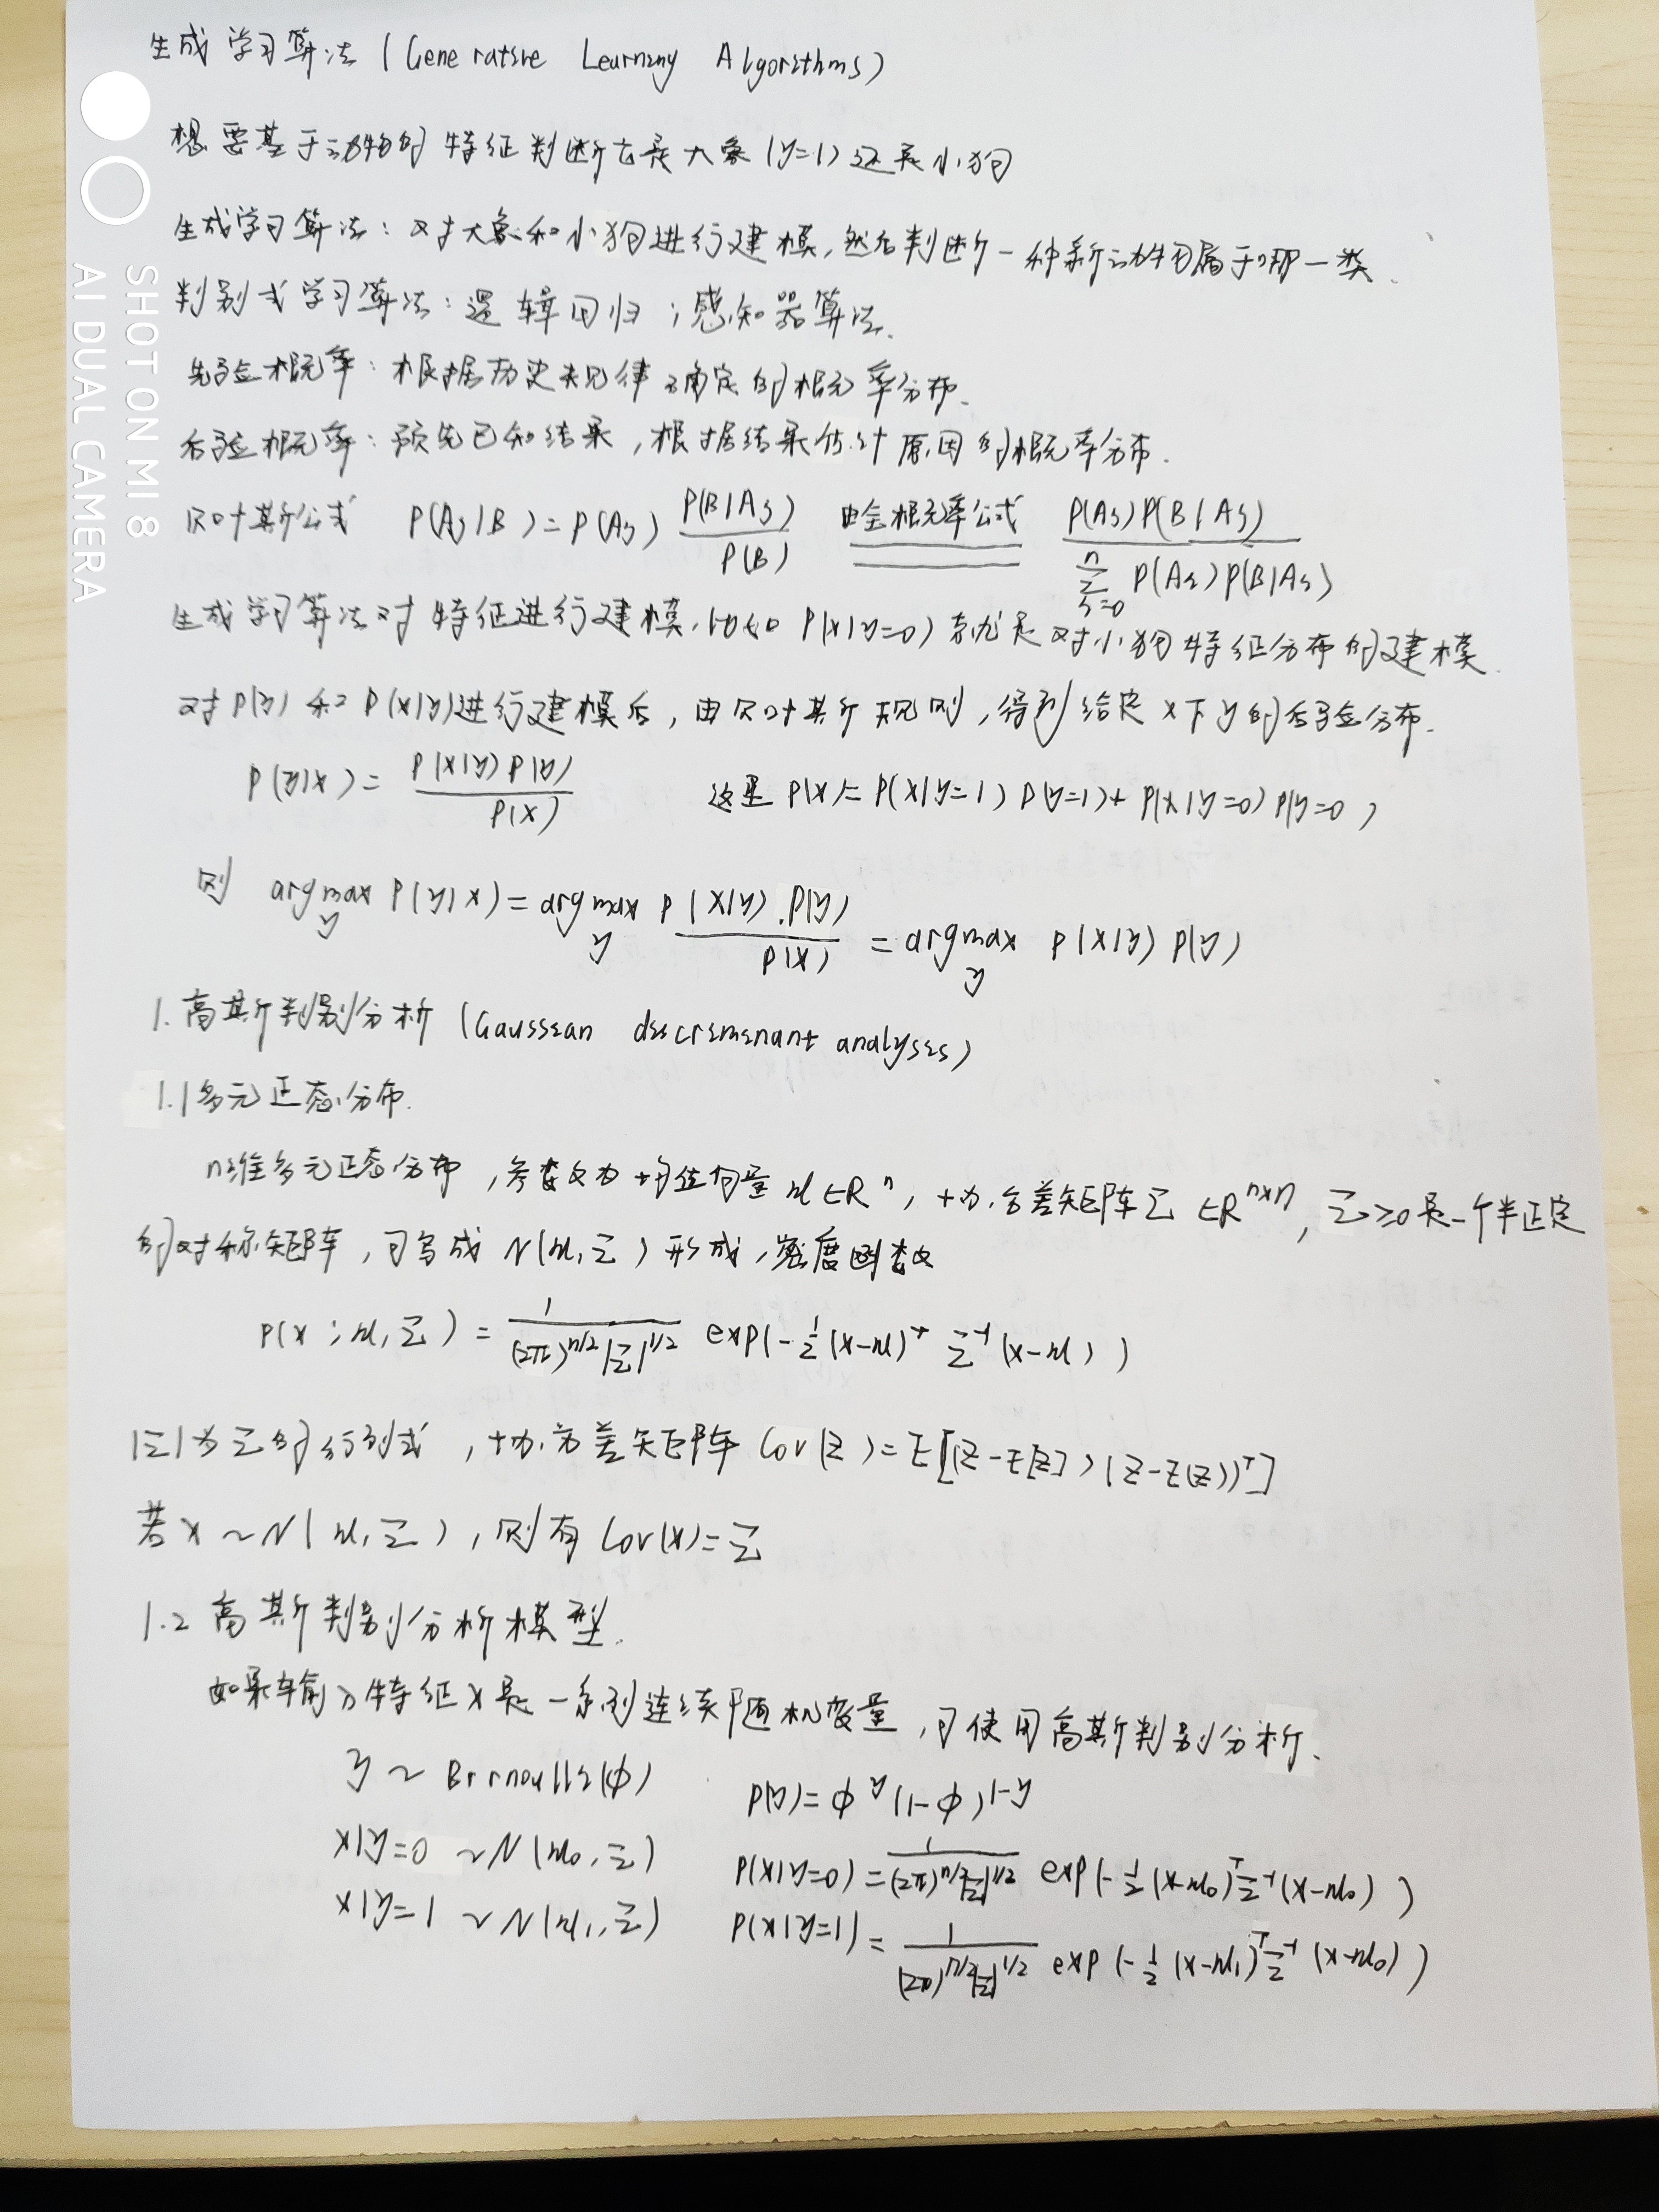 生成学习算法 (Generative Learning Algorithms)
想要基于动物的特征判断它是大象(y=1)还是小狗
生成学习算法：对大象和小狗进行建模，然后判断一种新动物属于哪一类.
判别式学习算法：逻辑回归；感知器算法.
先验概率：根据历史规律确定的概率分布.
后验概率：预先已知结果，根据结果估计原因的概率分布.
贝叶斯公式 P(Aj|B)=P(Aj) P(B|Aj)/P(B) 由全概率公式 P(Aj)P(B|Aj)/∑_{i=0}^{n} P(Ai)P(B|Ai)
生成学习算法对特征进行建模，比如 P(x|y=0) 就是对小狗特征分布的建模
对P(y)和P(x|y)进行建模后，由贝叶斯规则，得到给定x下y的后验分布.
P(y|x)= P(x|y)P(y)/P(x) 这里 P(x)=P(x|y=1)P(y=1)+P(x|y=0)P(y=0)
则 argmax_y P(y|x)=argmax_y P(x|y).P(y)/P(x) =argmax_y P(x|y)P(y)
1.高斯判别分析 (Gaussian discriminant analysis)
1.1多元正态分布.
n维多元正态分布，参数为均值向量μ∈Rⁿ，协方差矩阵Σ∈Rⁿˣⁿ，Σ≥0是一个半正定
的对称矩阵，可写成 N(μ,Σ) 形成，密度函数
P(x;μ,Σ)= 1/((2π)^{n/2}|Σ|^{1/2}) exp(-1/2(x-μ)^T Σ^{-1}(x-μ))
|Σ|为Σ的行列式，协方差矩阵 Cov(Z)=E[(Z-E[Z])(Z-E(Z))^T]
若x~N(μ,Σ)，则有 Cov(x)=Σ
1.2 高斯判别分析模型.
如果输入特征x是一系列连续随机变量，可使用高斯判别分析.
y ~ Brrnoulli(φ) P(y)=φ^y(1-φ)^{1-y}
x|y=0 ~N(μ₀,Σ) P(x|y=0)= 1/((2π)^{n/2}|Σ|^{1/2}) exp(-1/2(x-μ₀)^T Σ^{-1}(x-μ₀))
x|y=1 ~N(μ₁,Σ) P(x|y=1)= 1/((2π)^{n/2}|Σ|^{1/2}) exp(-1/2(x-μ₁)^T Σ^{-1}(x-μ₀))
SHOT ON MI 8
AI DUAL CAMERA